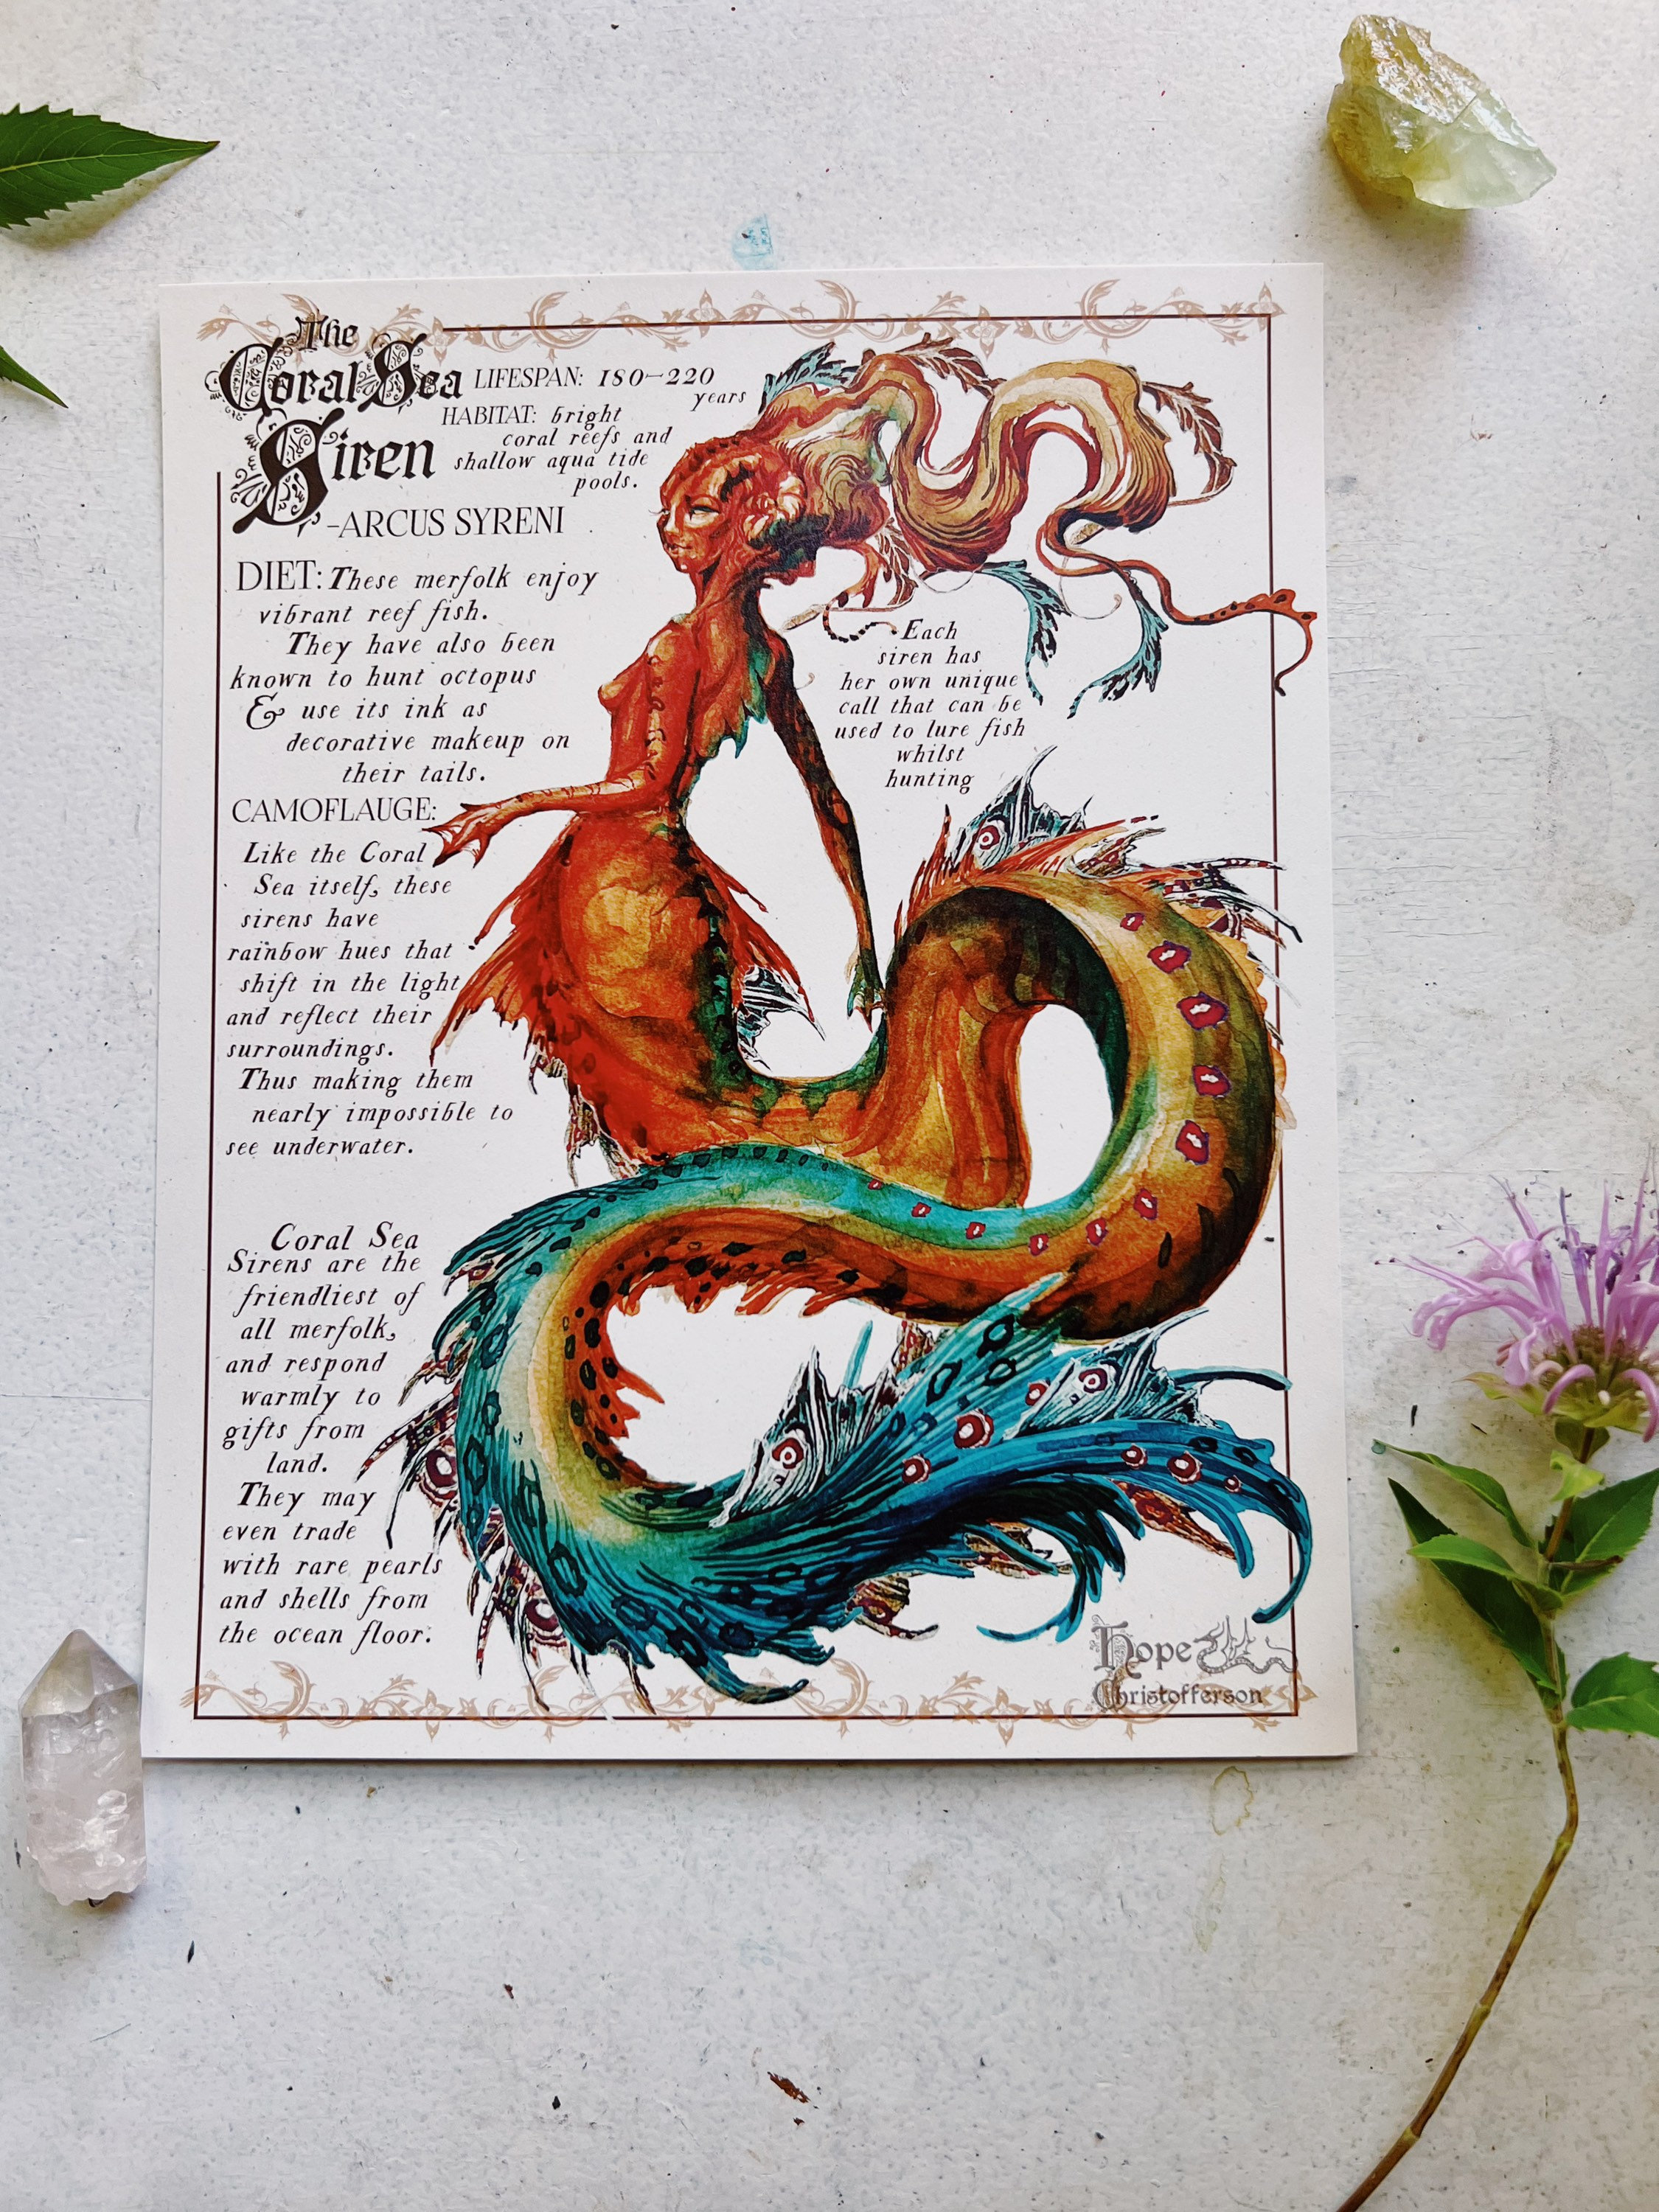 The
Coral Sea
Siren
-ARCUS SYRENI
LIFESPAN: 180-220
years
HABITAT: bright
coral reefs and
shallow aqua tide
pools.
DIET: These merfolk enjoy
vibrant reef fish.
They have also been
known to hunt octopus
& use its ink as
decorative makeup on
their tails.
Each
siren has
her own unique
call that can be
used to lure fish
whilst
hunting
CAMOFLAUGE:
Like the Coral
Sea itself, these
sirens have
rainbow hues that
shift in the light
and reflect their
surroundings.
Thus making them
nearly impossible to
see underwater.
Coral Sea
Sirens are the
friendliest of
all merfolk,
and respond
warmly to
gifts from
land.
They may
even trade
with rare pearls
and shells from
the ocean floor.
Hope
Christofferson